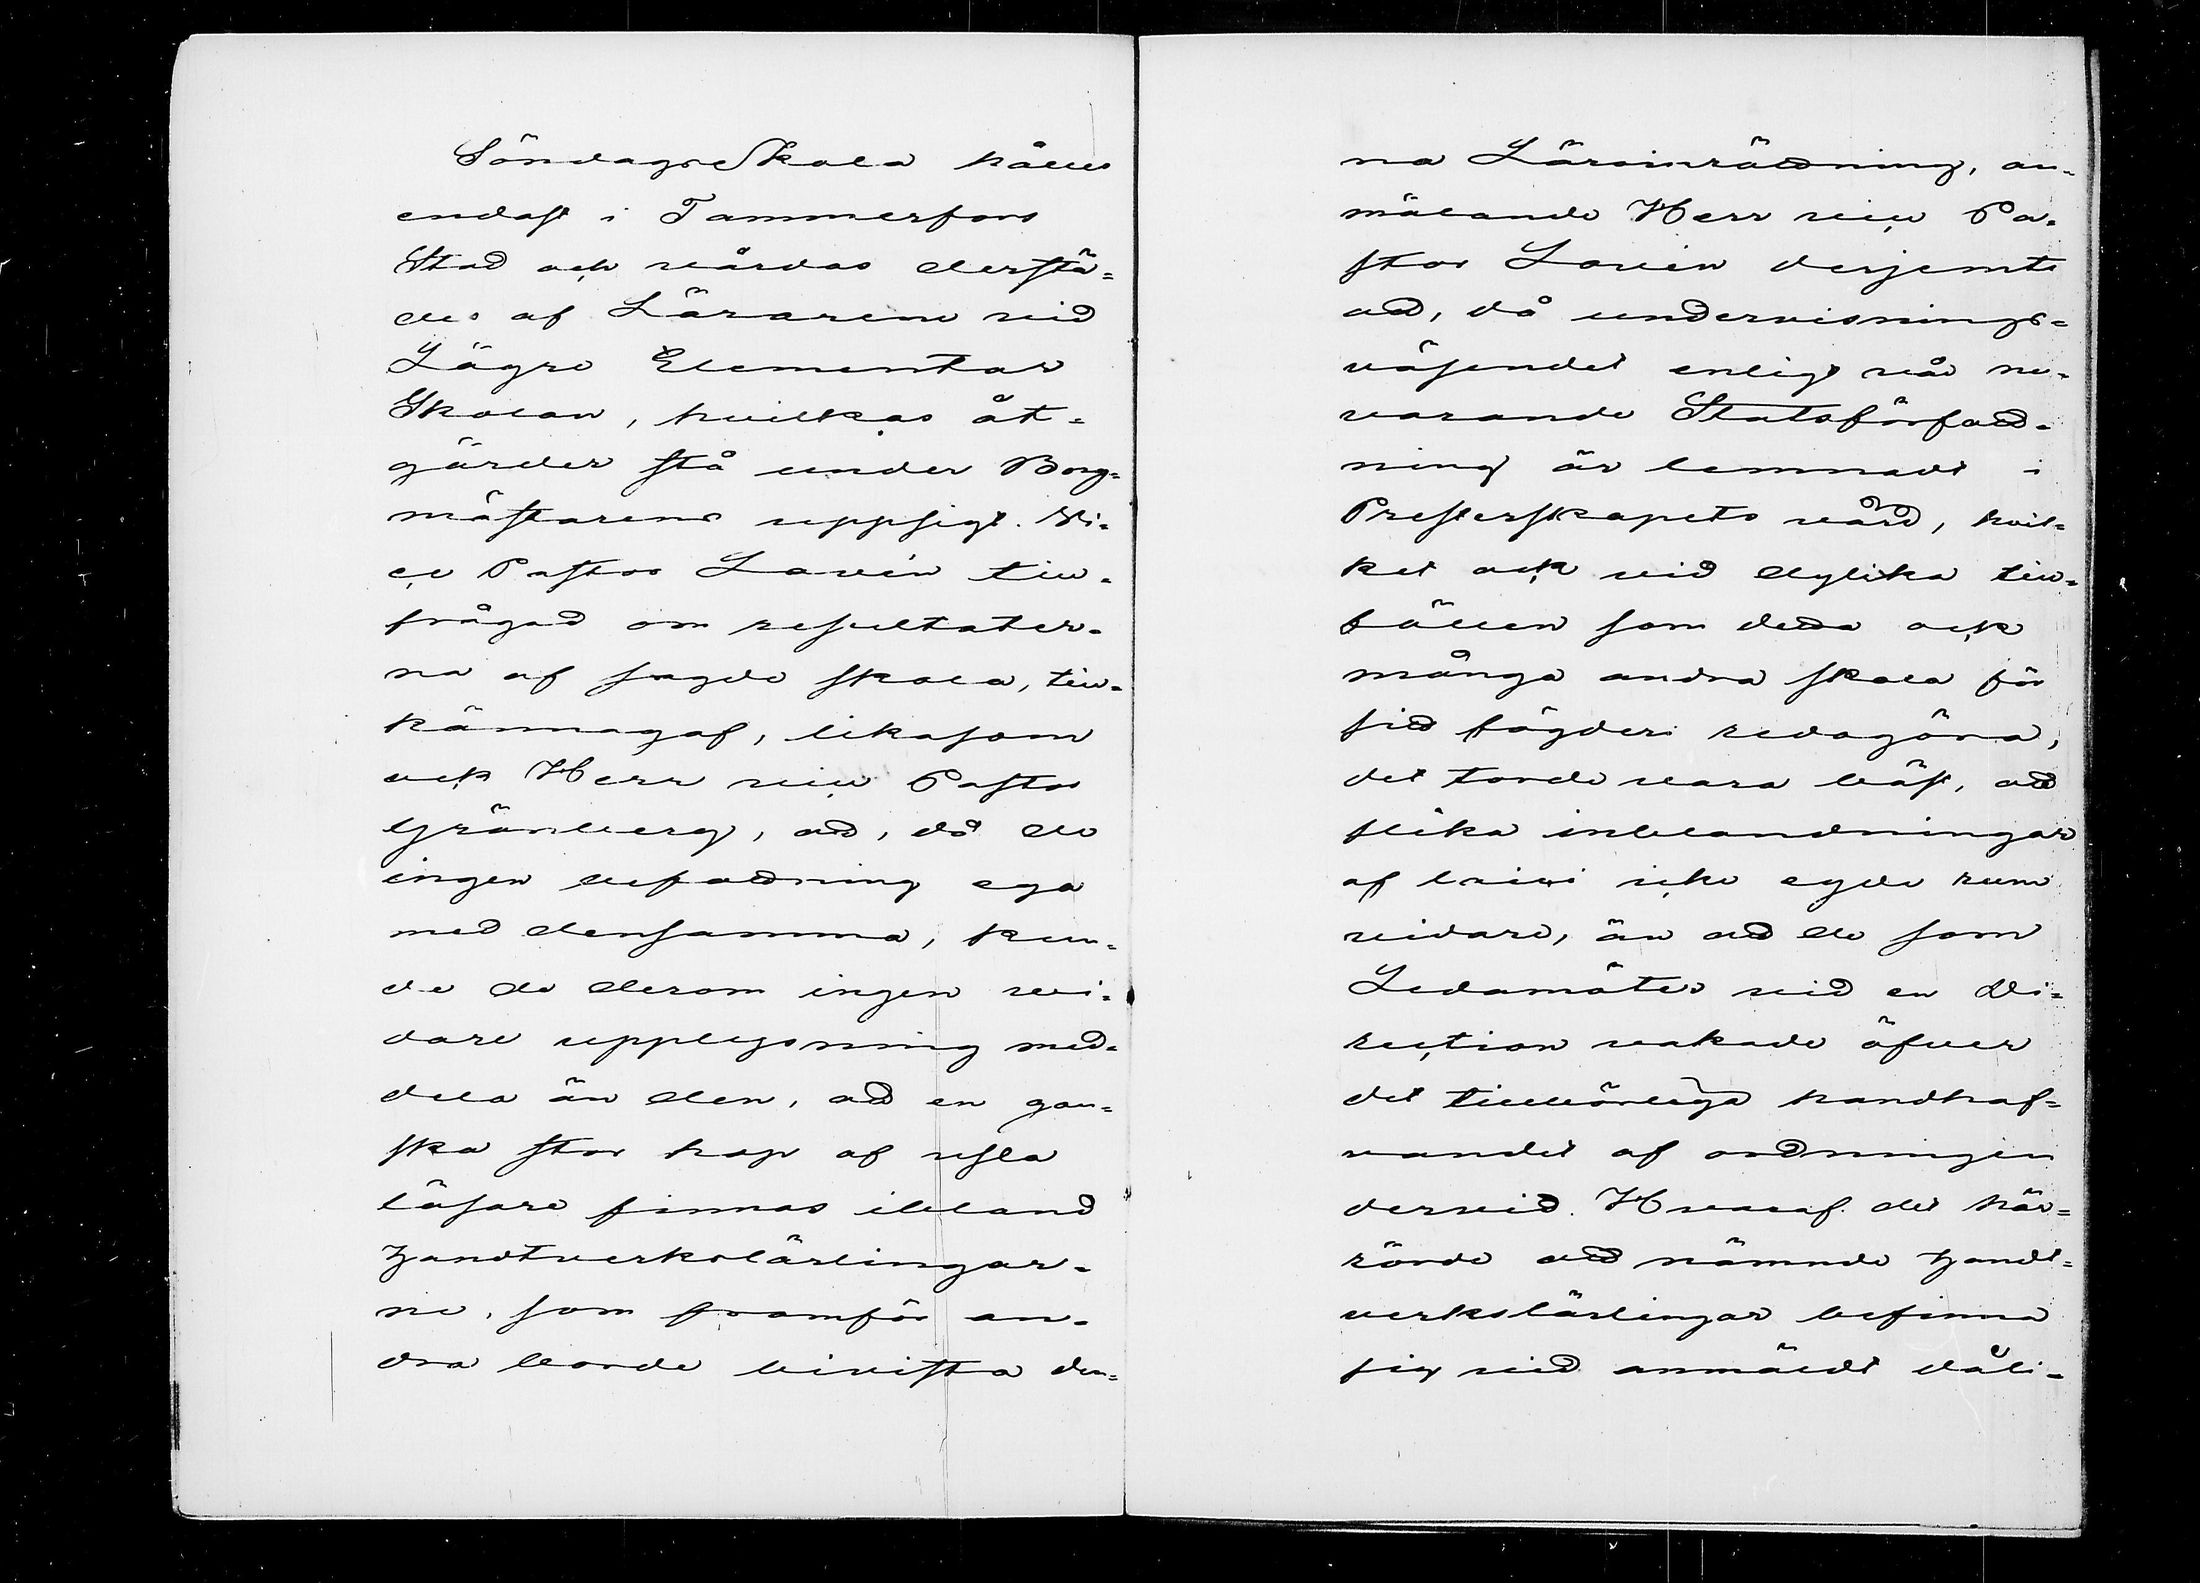 Söndagsskola hålles
endast i Tammerfors
Stad och vårdas derstä-
des af Lärarene vid
Lägre Elementar
Skolan, hvilkas åt-
gärder stå under Borg-
mästarens uppsigt. Vi-
ce Pastor Lavén till-
frågad om resultater-
na af sagde skola, till-
kännagaf, likasom
ock Herr vice Pastor
Grönberg, att, då de
ingen befattning ega
med densamma, kun-
de de derom ingen vi-
dare upplysning med-
dela än den, att en gan-
ska stor hop af usla
läsare finnas ibland
handtverkslärlingar-
ne, som framför an-
dra borde bivista den-
na Läroinrättning, an-
mälande Herr vice Pa-
stor Lavén derjemte
att, då undervisnings-
väsendet enligt vår nu-
varande Statsförfatt-
ning är lemnadt i
Presterskapets vård, hvil-
ket ock vid dylika till-
fällen som detta och
många andra skola för
sitt fögderi redogöra,
det torde vara bäst, att
slika inblandningar
af leivi icke egde rum
vidare, än att de som
Ledamöter vid en Di-
rection vakade öfver
det tillbörliga handhaf-
vandet af ordningen
dervid. Hvaraf det här-
rörde att nämnde handt-
verkslärlingar befinna
sig vid anmäldt dåli-